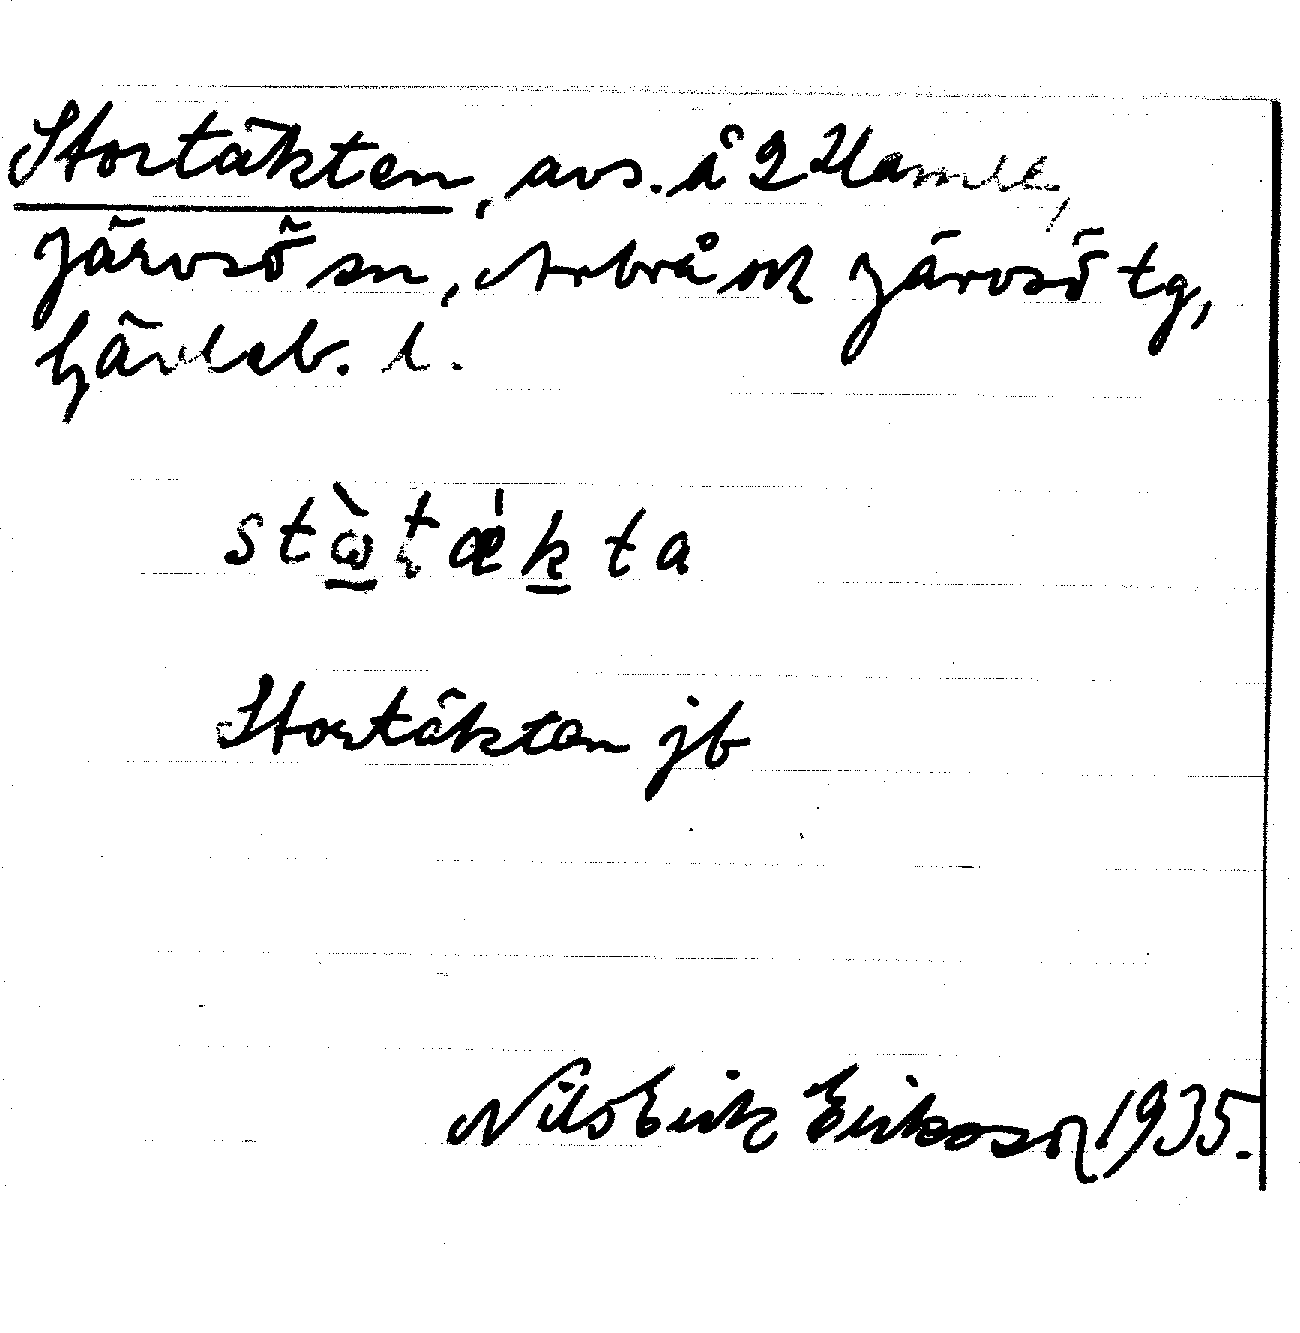 Stortäkten, avs. å 2 Hamre,
Järvsö sn, Arbrå och Järvsö tg,
Gävleb. l.
stὼ̠ʈæ̍k̠ta
Stortäkten jb
Nils Erik Eriksson 1935.